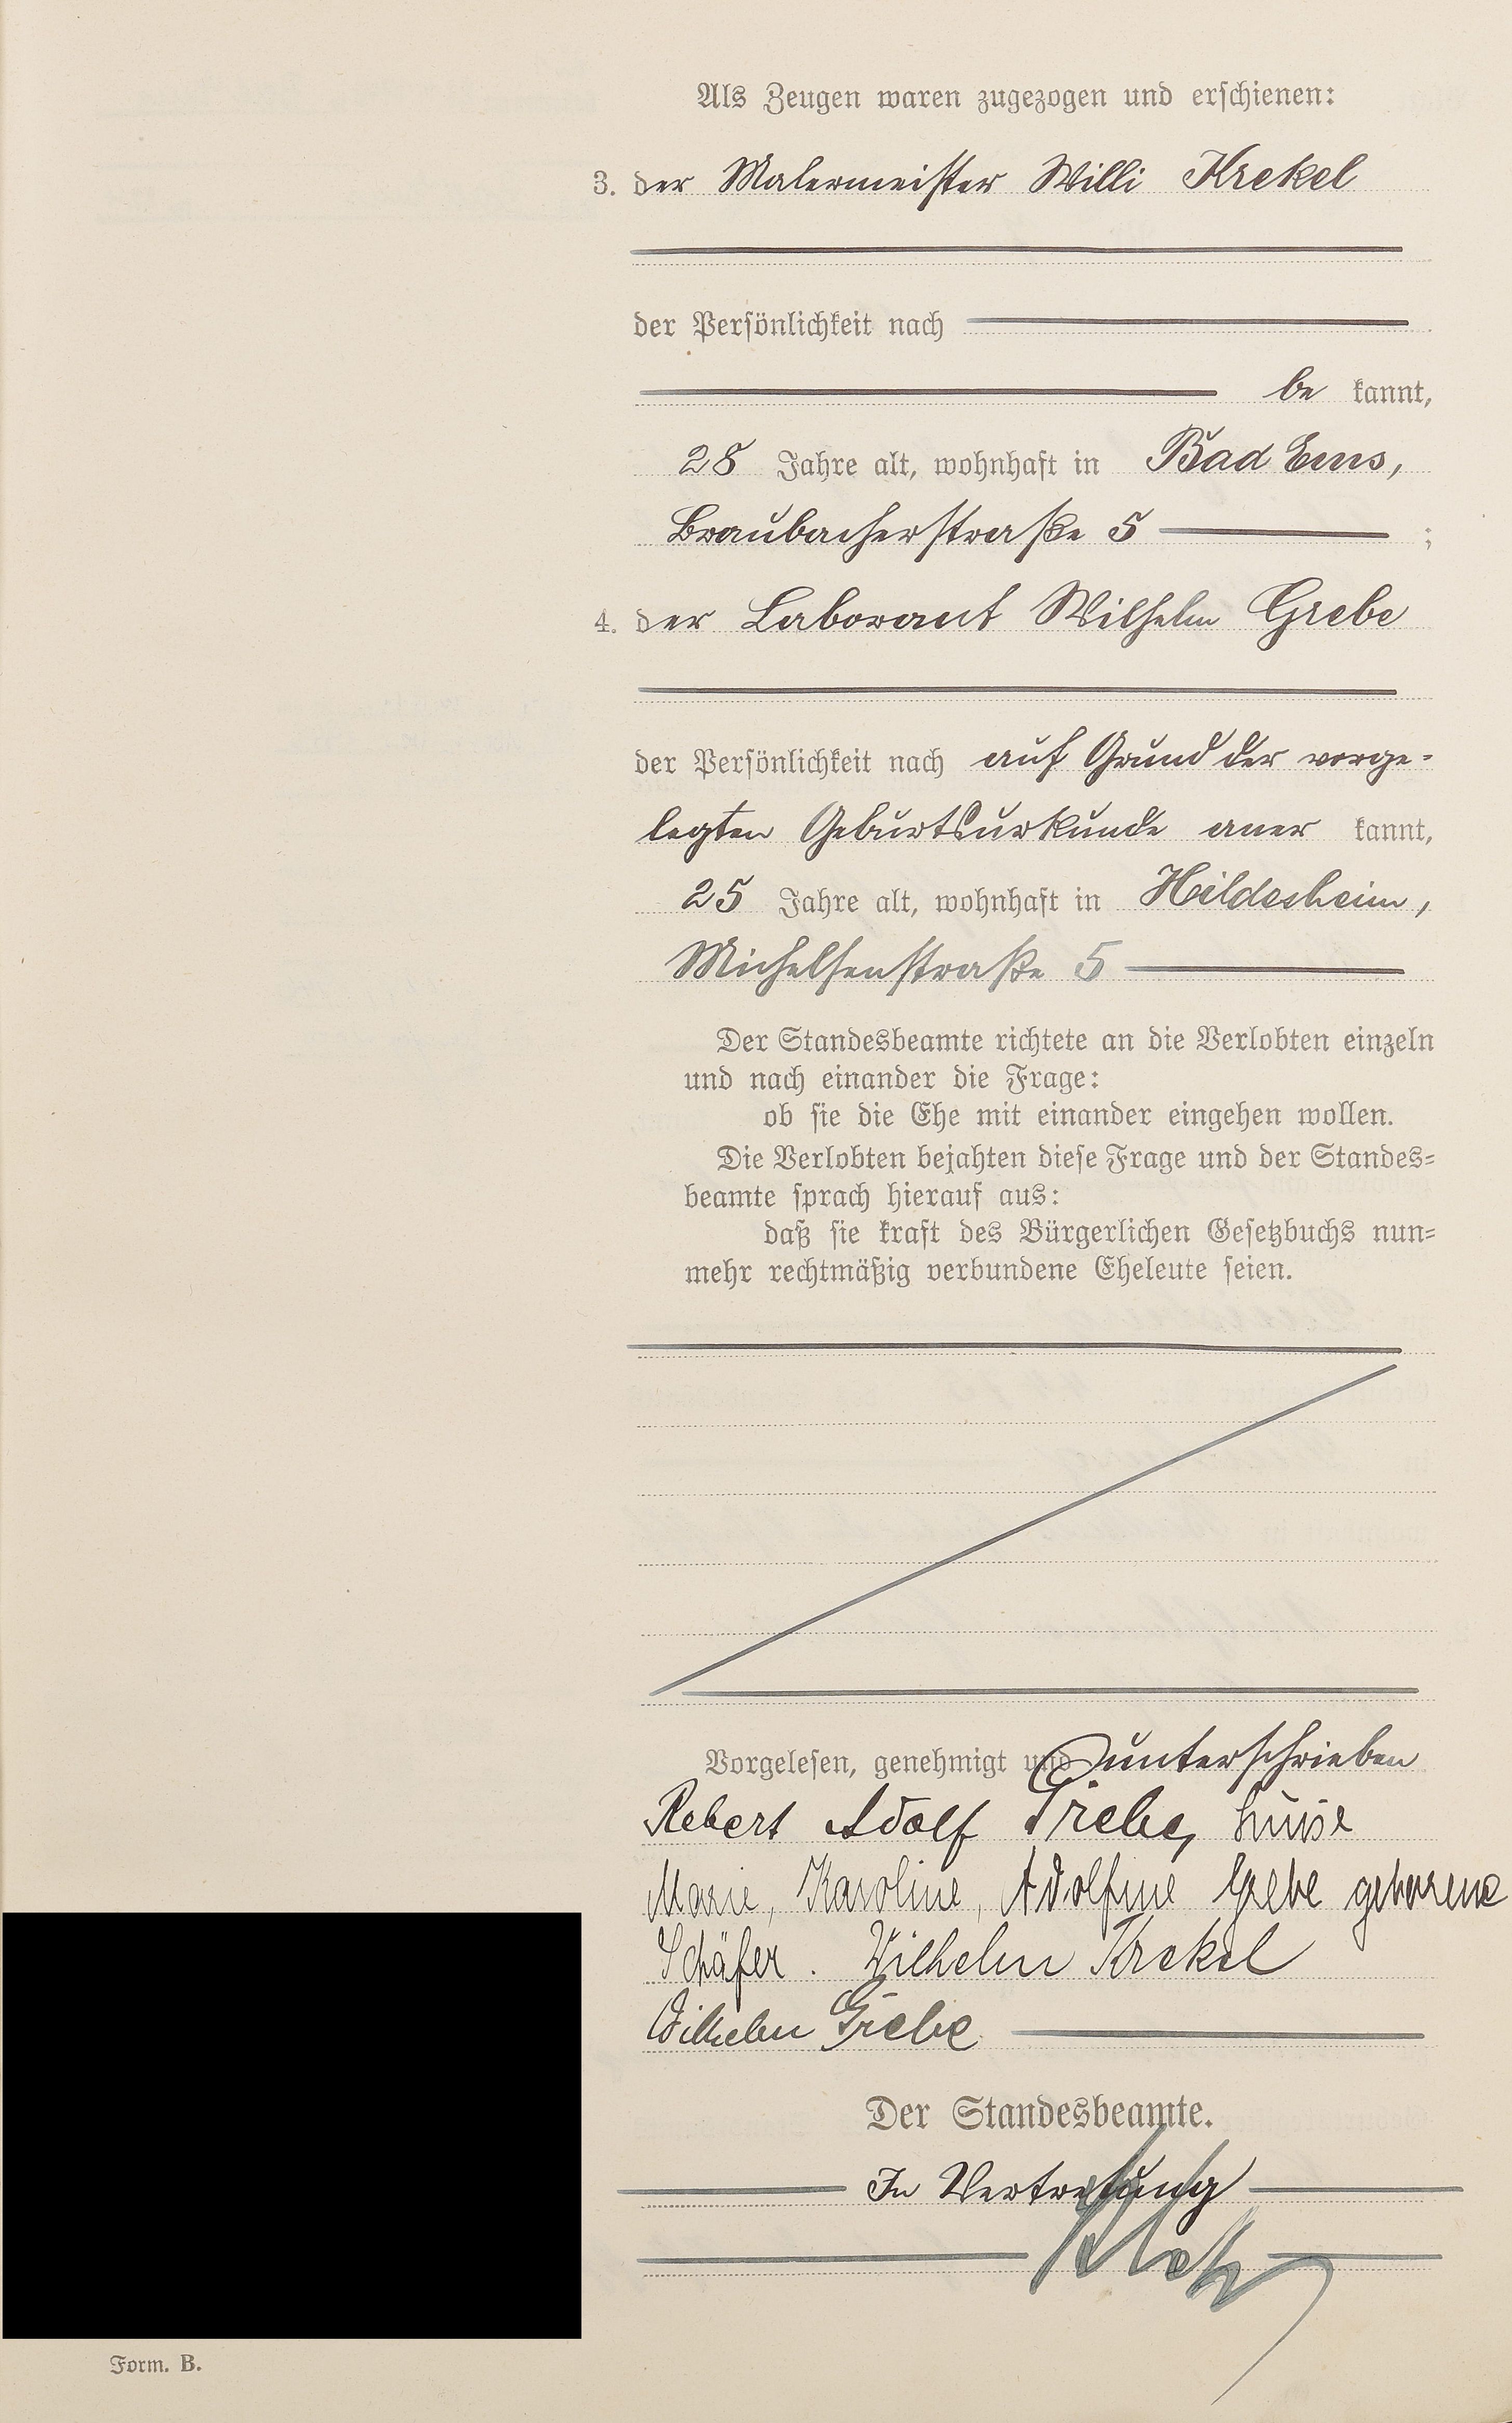 Als Zeugen waren zugezogen und erschienen:
3. der Malermeister Willi Krekel
der Persönlichkeit nach
be kannt,
28 Jahre alt, wohnhaft in Bad Ems,
Braubacherstraße 5 ;
4. der Laborant Wilhelm Grebe
der Persönlichkeit nach auf Grund der vorge-
legten Geburtsurkunde aner kannt,
25 Jahre alt, wohnhaft in Hildesheim,
Michelsenstraße 5
Der Standesbeamte richtete an die Verlobten einzeln
und nach einander die Frage:
ob sie die Ehe mit einander eingehen wollen.
Die Verlobten bejahten diese Frage und der Standes-
beamte sprach hierauf aus:
daß sie kraft des Bürgerlichen Gesetzbuchs nun-
mehr rechtmäßig verbundene Eheleute seien.
Vorgelesen, genehmigt und unterschrieben
Robert Adolf Grebe, Luise
Marie, Karoline, Adolfine Grebe geborene
Schäfer. Wilhelm Krekel
Wilhelm Grebe
Der Standesbeamte.
In Vertretung
Form. B.